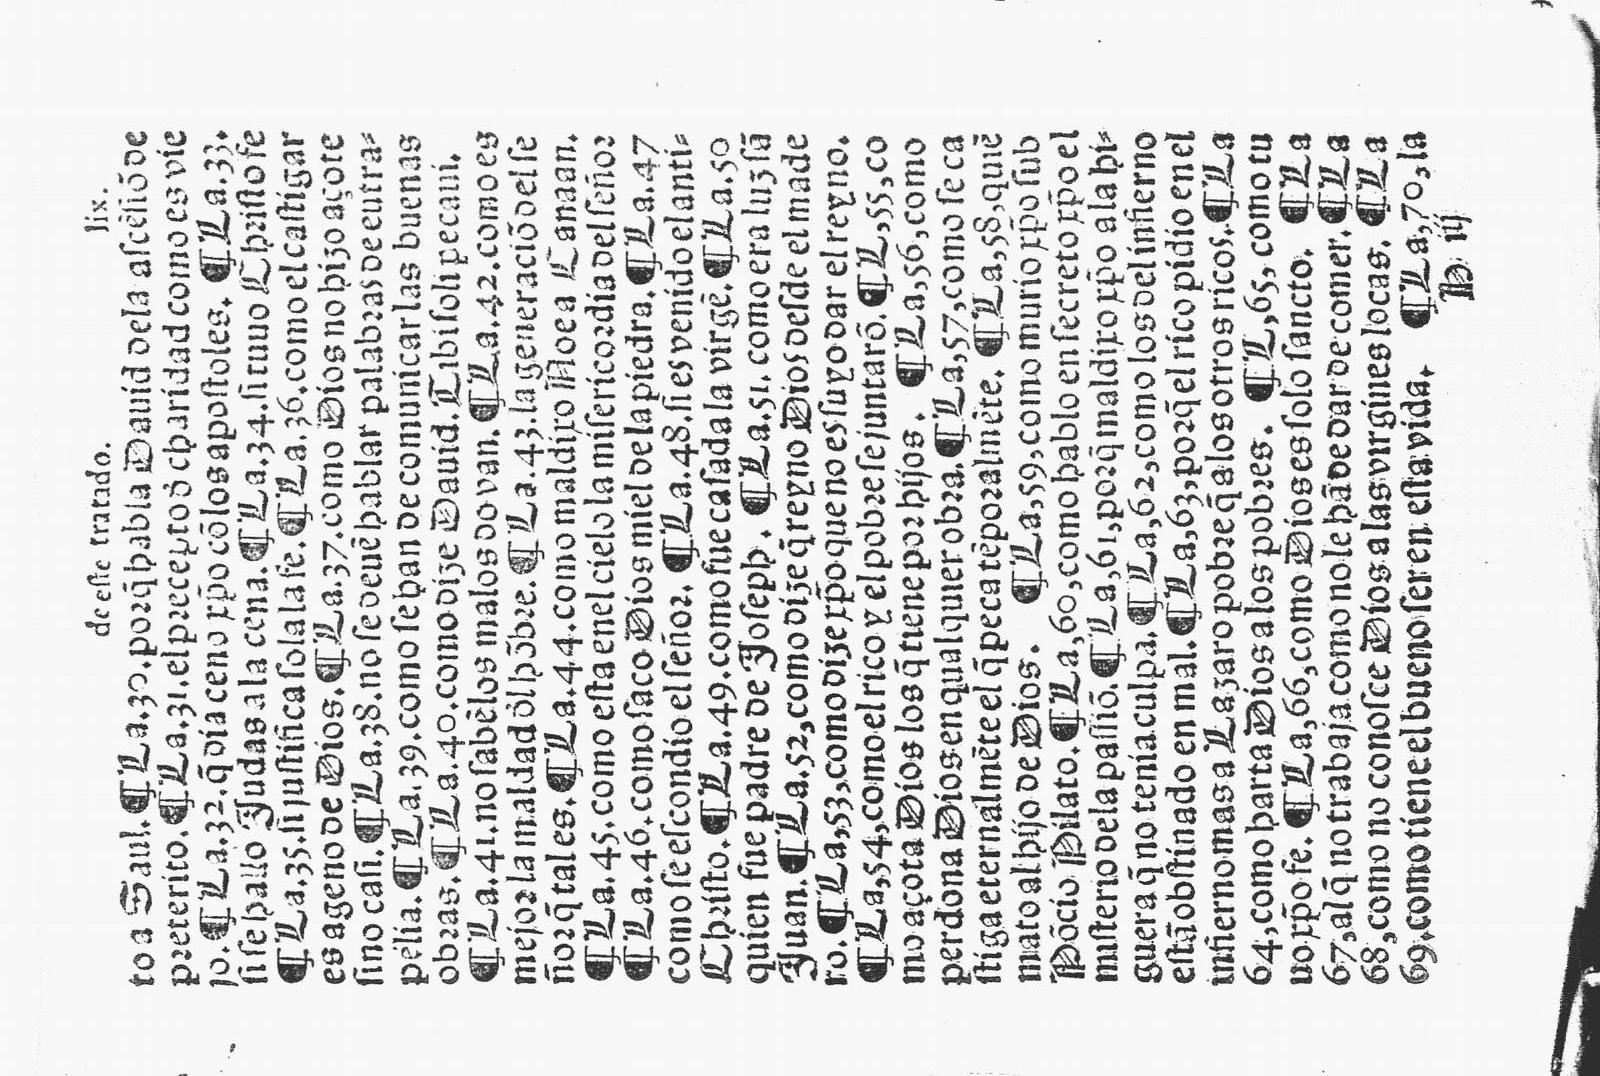 de este tratado. lix.
to a Saul. ¶ La.30.porq̄ habla Dauid dela ascēsiō de
preterito. ¶ La.31.el precepto ď charidad como es vie
jo. ¶ La.32.q̄ dia ceno xp̄o cō los apostoles. ¶ La.33.
si se hallo Judas a la cena. ¶ La.34.si tuuo Christo fe
¶ La.35.si justifica sola la fe. ¶ La.36.como el castigar
es ageno de Dios. ¶ La.37.como Dios no hizo açote
sino casi. ¶ La.38.no se deuē hablar palabras de eutra-
pelia. ¶ La.39.como se han de comunicar las buenas
obras. ¶ La.40.como dize Dauid. Tibi soli pecaui.
¶ La.41.no sabē los malos do van. ¶ La.42.como es
mejor la maldad ďl hōbre. ¶ La.43.la generaciō del se
ñor q̄ tal es. ¶ La.44.como maldixo Noe a Canaan.
¶ La.45.como esta en el cielo la misericordia del señor
¶ La.46.como saco Dios miel de la piedra. ¶ La.47
como se escondio el señor. ¶ La.48.si es venido el anti-
Christo. ¶ La.49.como fue casada la virgē. ¶ La.50
quien fue padre de Joseph. ¶ La.51.como era luz sā
Juan. ¶ La.52,como dize q̄ reyno Dios desde el made
ro. ¶ La,53,como dize xp̄o que no es suyo dar el reyno.
¶ La,54,como el rico y el pobre se juntarō. ¶ L,55,co
mo açota Dios los q̄ tiene por hijos. ¶ La,56,como
perdona Dios en qualquier obra. ¶ La,57,como se ca
stiga eternalmēte el q̄ peca tēporalmēte. ¶ La,58,quiē
mato al hijo de Dios. ¶ La,59,como murio xp̄o sub
Pōcio Pilato. ¶ La,60,como hablo en secreto xp̄o el
misterio dela passiō. ¶ La,61,porq̄ maldixo xp̄o a la hi-
guera q̄ no tenia culpa. ¶ La,62,como los del infierno
estā obstinado en mal. ¶ La,63,porq̄ el rico pidio en el
infierno mas a Lazaro pobre q̄ a los otros ricos. ¶ La
64,como harta Dios a los pobres. ¶ L,65,como tu
uo xp̄o fe. ¶ La,66,como Dios es solo sancto. ¶ La
67,al q̄ no trabaja como no le hā de dar de comer. ¶ La
68,como no conosce Dios a las virgines locas. ¶ La
69,como tiene el bueno ser en esta vida. ¶ La,70,la
H iij